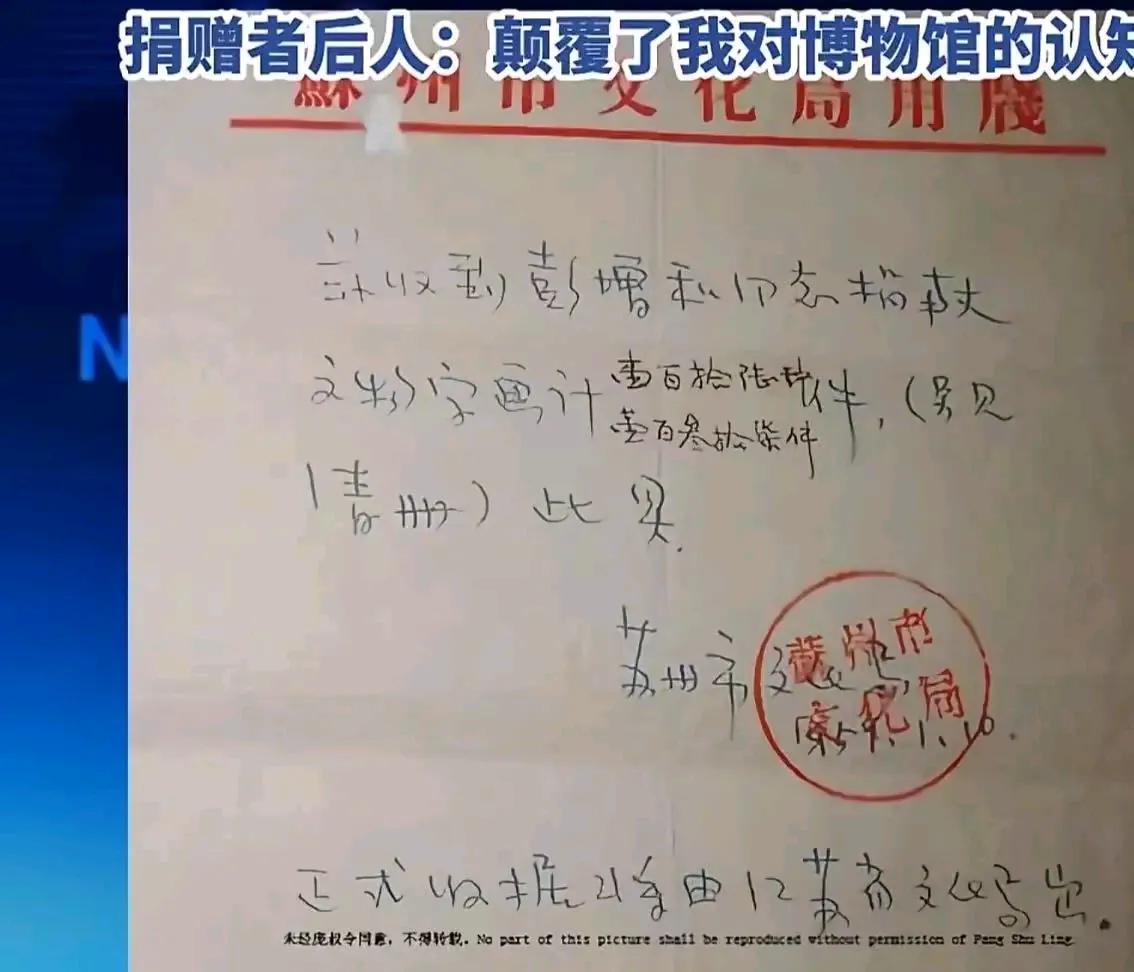 捐赠者后人：颠覆了我对博物馆的认知
蘇州市文化局用牋
兹收到彭增和同志捐献
文物字画计壹百拾陆种件，（另见
壹百叁拾柒件
清册）此具.
苏州市文化局
蘇州市
文化局
59.1.10.
正式收据将由江苏省文化局出。
未经庞叔令同意，不得转载。No part of this picture shall be reproduced without permission of Pang Shu Ling
N